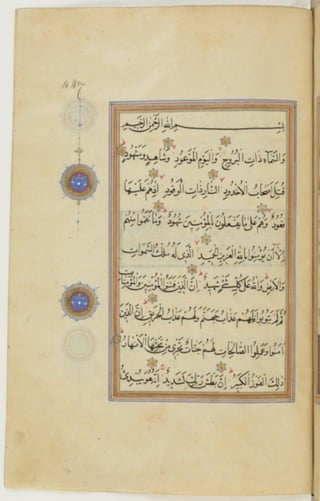 بسم الله الرحمن الرحيم
والسماء ذات البروج واليوم الموعود وشاهد ومشهود
قتل اصحاب الاخدود النار ذات الوقود اذ هم عليها
قعود وهم على ما يفعلون بالمؤمنين شهود وما نقموا منهم
الا ان يؤمنوا بالله العزيز الحميد الذي له ملك السموات
والارض والله على كل شئ شهيد ان الذين فتنوا المؤمنين والمؤمنات
ثم لم يتوبوا فلهم عذاب جهنم ولهم عذاب الحريق ان الذين
امنوا وعملوا الصالحات لهم جنات تجري من تحتها الانهار
ذلك الفوز الكبير ان بطش ربك لشديد انه هو يبدئ